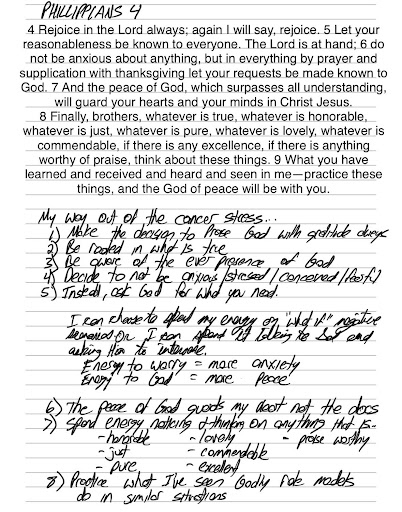 PHILLIPPIANS 4
4 Rejoice in the Lord always; again I will say, rejoice. 5 Let your
reasonableness be known to everyone. The Lord is at hand; 6 do
not be anxious about anything, but in everything by prayer and
supplication with thanksgiving let your requests be made known to
God. 7 And the peace of God, which surpasses all understanding,
will guard your hearts and your minds in Christ Jesus.
8 Finally, brothers, whatever is true, whatever is honorable,
whatever is just, whatever is pure, whatever is lovely, whatever is
commendable, if there is any excellence, if there is anything
worthy of praise, think about these things. 9 What you have
learned and received and heard and seen in me—practice these
things, and the God of peace will be with you.
My way out of the cancer stress...
1) Make the decision to Praise God with gratitude always
2) Be rooted in what is true
3) Be aware of the ever presence of God
4) Decide to not be anxious/stressed/concerned/
5) Instead, ask God for what you need.
I can choose to spend my energy on "what if" negative
scenarios Or I can spend it talking to God and
asking Him to intervene.
Energy to worry = more anxiety
Energy to God = more peace
6) The peace of God guards my heart not the docs
7) spend energy noticing & thinking on anything that is-
- honorable - lovely - praise worthy
- just - commendable
- pure - excellent
8) Practice what I've seen Godly role models
do in similar situations